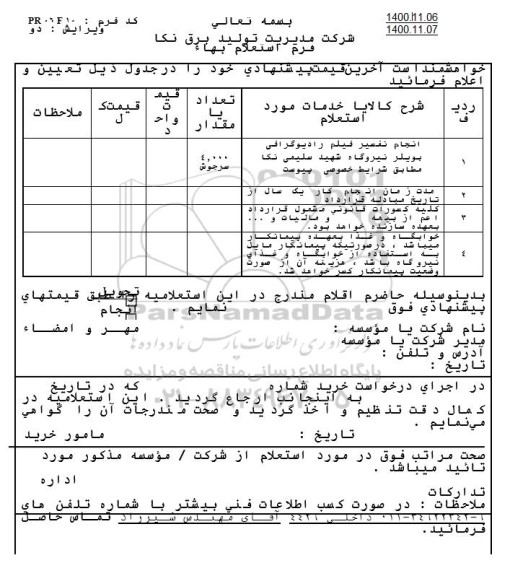 بسمه تعالی
کد فرم : PR-۰۶F۱۰
ویرایش : دو
1400.11.06
1400.11.07
شرکت مدیریت تولید برق نکا
فرم استعلام بهاء
خواهشمنداست آخرین قیمت پیشنهادي خود را درجدول ذیل تعیین و
اعلام فرمائید
ردیف
شرح کالایا خدمات مورد استعلام
تعداد یا مقدار
قیمت واحد
قیمت کل
ملاحظات
۱
انجام تفسیر فیلم رادیوگرافی
بویلر نیروگاه شهید سلیمی نکا
مطابق شرایط خصوصی پیوست
۴,۰۰۰
سرجوش
۲
مدت زمان انجام کار یک سال از
تاریخ مبادله قرارداد
۳
کلیه کسورات قانونی مشمول قرارداد
اعم از بیمه و مالیات و ...
بعهده سازنده خواهد بود.
۴
خوابگاه و غذا بعهده پیمانکار
میباشد ، درصورتیکه پیمانکار مایل
به استفاده از خوابگاه و غذاي
نیروگاه باشد ، هزینه آن از صورت
وضعیت پیمانکار کسر خواهد شد.
بدینوسیله حاضرم اقلام مندرج در این استعلامیه را طبق قیمتهاي
پیشنهادي فوق تحویل انجام نمایم .
نام شرکت یا مؤسسه : مهر و امضاء
مدیر شرکت یا مؤسسه
آدرس و تلفن :
تاریخ :
در اجراي درخواست خرید شماره که در تاریخ
به اینجانب ارجاع گردید . این استعلامیه در
کمال دقت تنظیم و اخذ گردید و صحت مندرجات آن را گواهي
می‌نمایم .
تاریخ : مامور خرید
صحت مراتب فوق در مورد استعلام از شرکت / مؤسسه مذکور مورد
تائید میباشد .
اداره
تدارکات
ملاحظات : در صورت کسب اطلاعات فني بیشتر با شماره تلفن هاي
فرمائید.
ParsNamadData
فرآوری اطلاعات پارس نماد داده ها
پایگاه اطلاع رسانی مناقصه و مزایده